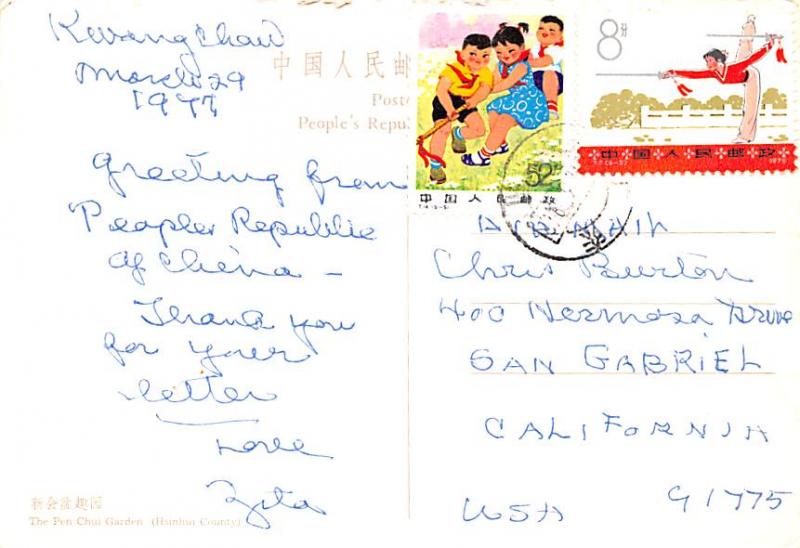 Kwangchow
March 29
1977
中国人民邮
Post
People's Repu
Greeting from
Peoples Republic
of China –
Thank you
for your
letter
Love
Zita
新会盆趣园
The Pen Chui Garden (Hsinhui County)
52
中国人民邮政
8分
中国人民邮政
1975
AIR MAIL
Chris Burton
400 Hermosa Drive
SAN GABRIEL
CALIFORNIA
USA 91775